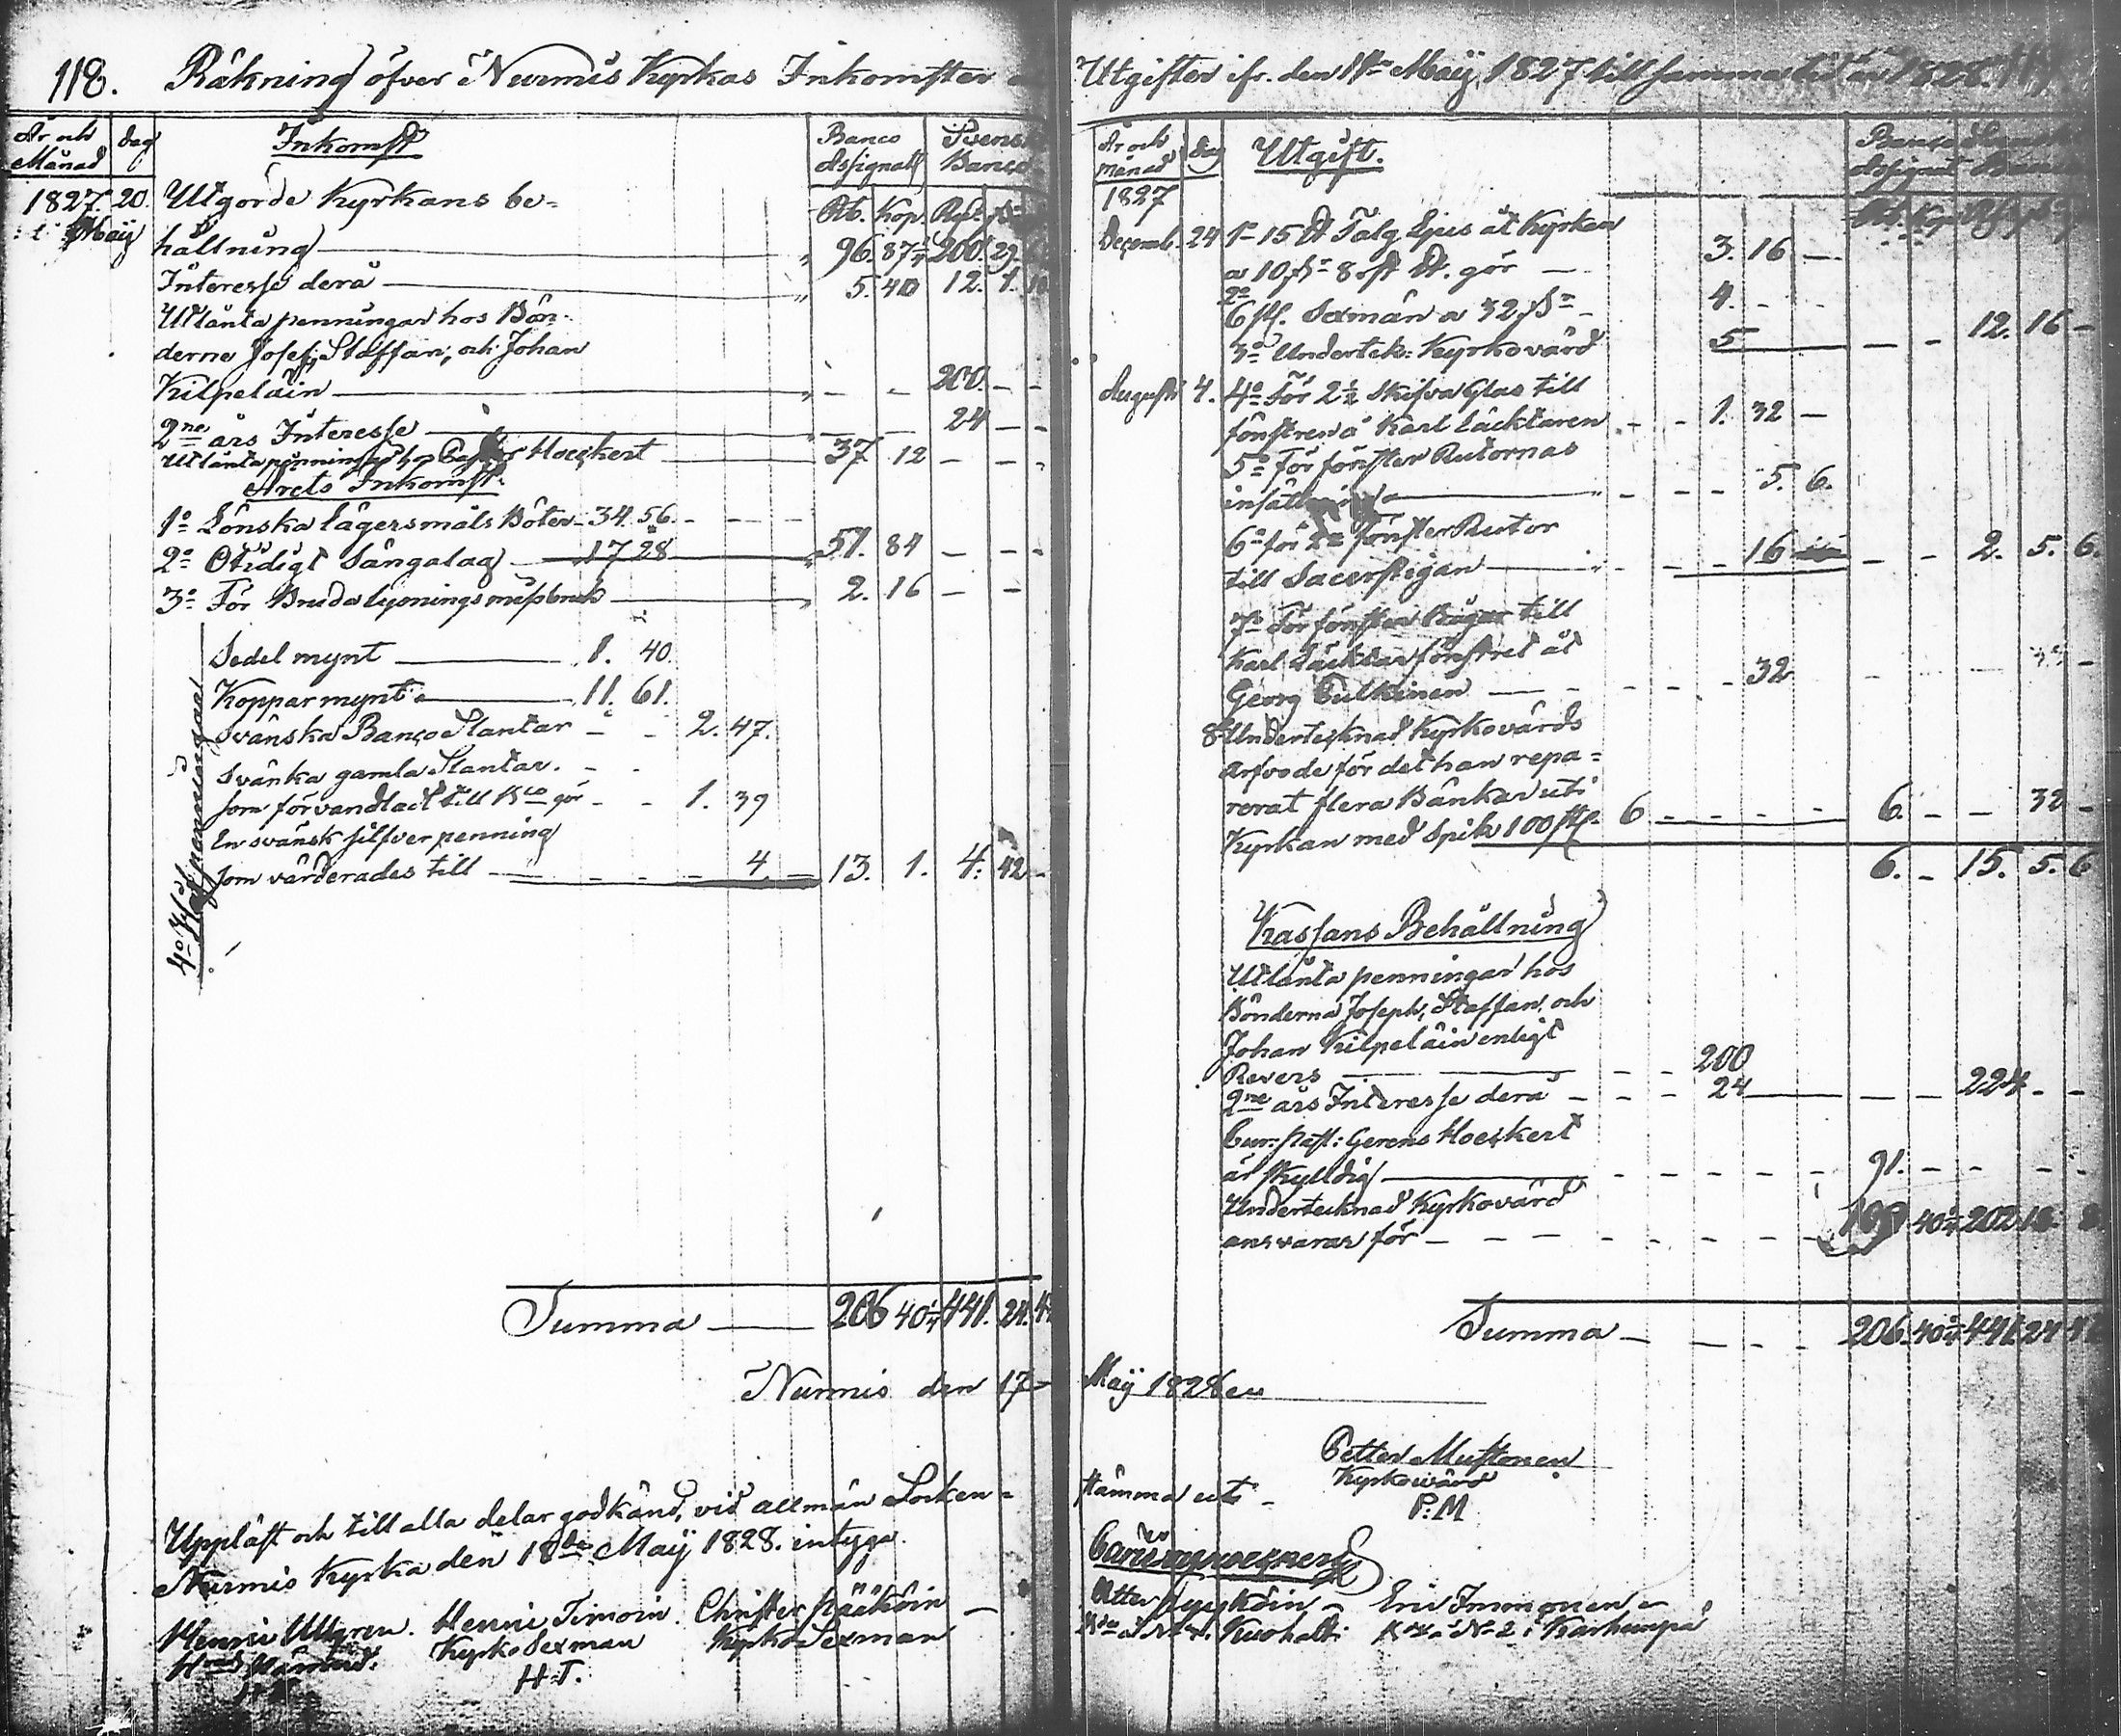 118. Räkning öfver Nurmis Kyrkas Inkomster
År och Månad dag Inkomst Banco Assignat Svensk Banco
Rb. Kop. Rgd.
1827 20. Utgorde Kyrkans be-
1 Maij hållning 96. 87 1/4 200. 29.
Interesse derå 5. 40 12. 1.
Utlånta penningar hos Bön-
derne Josef, Staffan, och Johan
Kilpeläin 200. - -
2ne års Interesse 24 - -
Utlånta penningar hos Pastor Hoeckert 37 12 - - -
Årets Inkomst.
1o Lönska Lägersmåls Böter 34. 56.
2o Otidigt Sängalag 17 28 51. 84 - - -
3o För Bruda lysnings missbruk 2. 16 - -
4o Håf penningar
Sedel mynt 1. 40.
Koppar mynt 11. 61.
Svänska Banco Slantar - - 2. 47.
Svänka gamla Slantar. - -
som förvandladt till Bco gör - - 1. 39
En svänsk silfver penning
som värderades till - - - - 4. - 13. 1. 4. 42 -
Summa 206 40 1/4 441. 24.
Nurmis den 17
Uppläst och till alla delar godkänd, vid allmän Socken=
Nurmis Kyrka den 18de Maij 1828. intyga
Henric Ullgren. Henric Timoin. Christer Pääköin
Kyrko Sexman Kyrko Sexman
H.T.
Utgifter ifr. den 1sta Maij 1827 till samma tid år 1828.
År och månad dag Utgift. Banco Assignat Svensk Banco
1827
Decemb. 24 1o 15 Talg Ljus åt Kyrkan
a 10 8 gör - 3. 16 -
2o
6 st. Sexmän a 32 - 4. - -
3o Undertek: Kyrkovärd 5 - - 12. 16 -
Augusti 4. 4o För 2 1/2 Skifva Glas till
fönstren å Karl Läcktaren - - 1. 32 -
5o För fönster Rutornas
insättning - - - 5. 6.
6o för 2ne fönster Rutor
till Sacerstigan - - 16 - - 2. 5. 6.
7o För fönster Bågar till
Karl Läcktar fönstret åt
Georg Pulkinen - - - - 32 - -
8o Undertecknad Kyrkovärds
Arfvode för det han repa=
rerat flera Bänkar uti
Kyrkan med Spik 100 st. 6 - - - - 6. - - 32 -
6. - 15. 5. 6
Kassans Behållning
Utlånta penningar hos
Bönderna Joseph, Staffan, och
Johan Kilpeläin enligt
Revers - - 200
2ne års Interesse derå - - - 24 - - 224 - -
Cur: Past: Gerens Hoeckert
är skyldig - - - - - - 91. - - - -
Undertecknad Kyrkovärd
ansvarar för - - - - - - - - 109 40 1/4 202
Summa - - - - 206. 40 1/4 441. 24
Maij 1828
Petter Mustonen
Kyrkovärd
P: M
stämma uti -
Eric Immonen
No 2 i Karhunpä